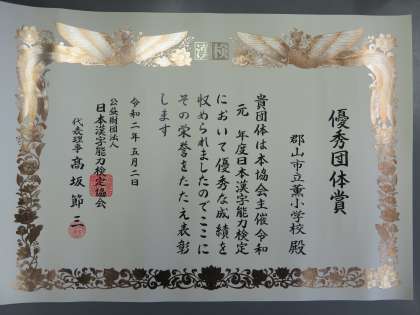 優秀団体賞
郡山市立薫小学校 殿
貴団体は本協会主催令和
元 年度日本漢字能力検定
において優秀な成績を
収められましたのでここに
その栄誉をたたえ表彰
します
令和二年五月二日
公益財団法人
日本漢字能力検定協会
代表理事 髙坂 節三